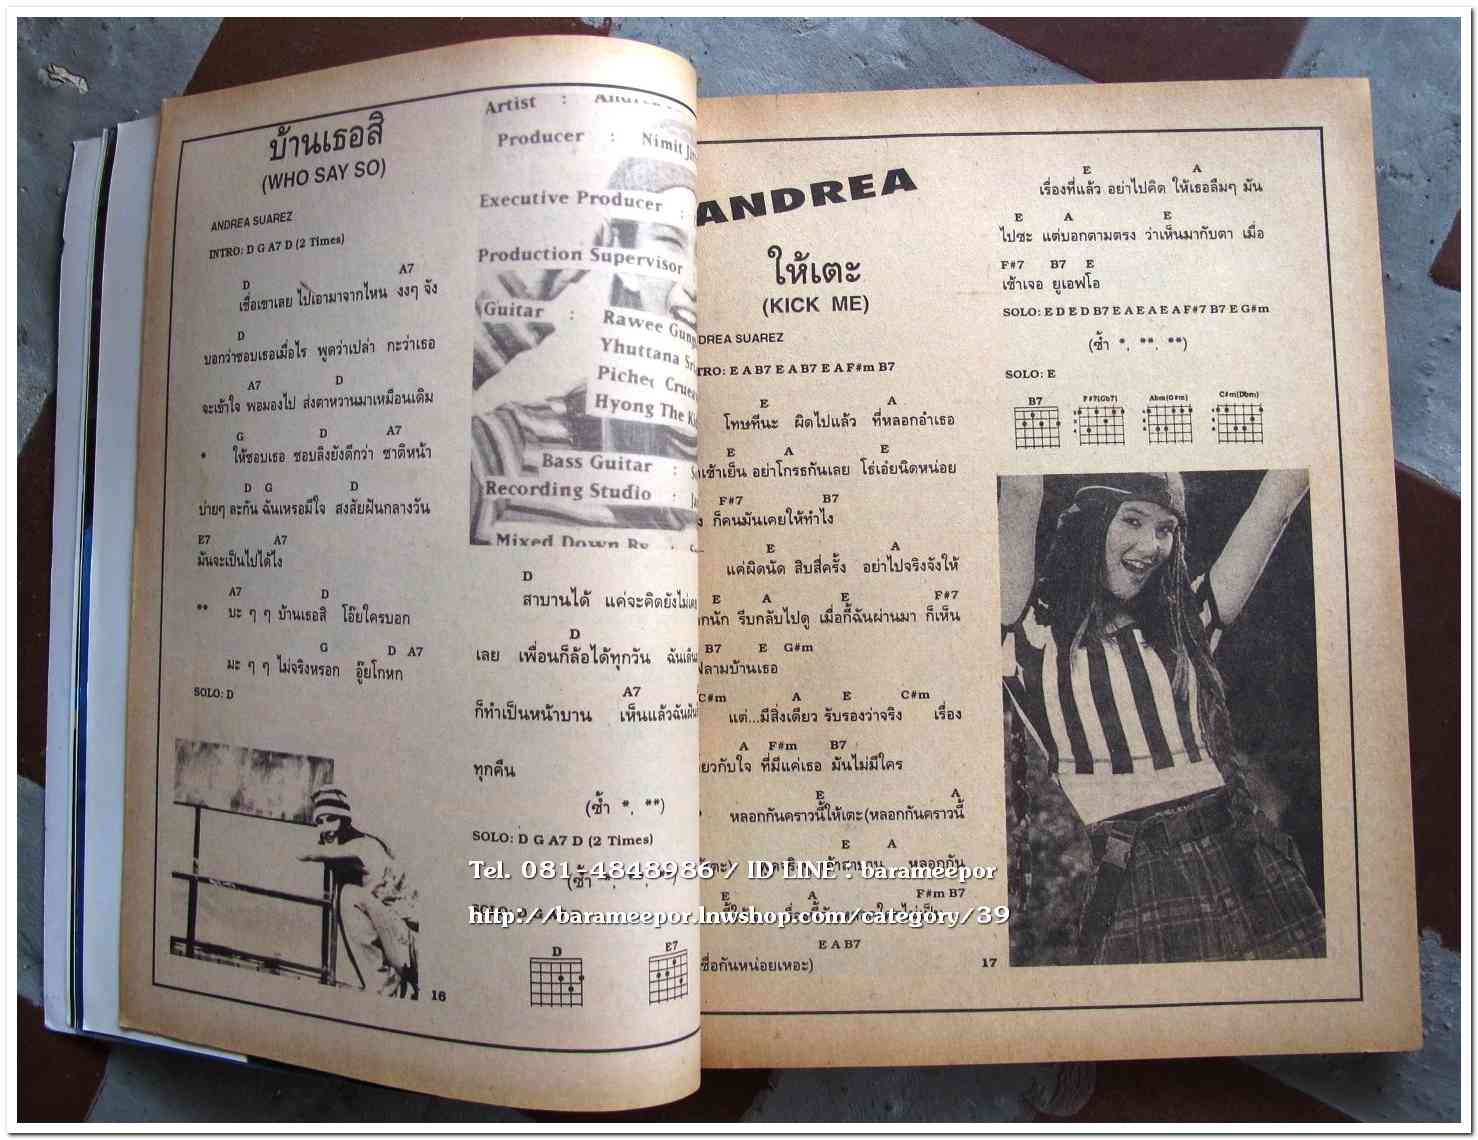 บ้านเธอสิ
(WHO SAY SO)
ANDREA SUAREZ
INTRO: D G A7 D (2 Times)
D A7
เชื่อเขาเลย ไปเอามาจากไหน งงๆ จัง
D
บอกว่าชอบเธอเมื่อไร พูดว่าเปล่า กะว่าเธอ
A7 D
จะเข้าใจ พอมองไป ส่งตาหวานมาเหมือนเดิม
G D A7
* ให้ชอบเธอ ชอบลิงยังดีกว่า ชาติหน้า
D G D
บ่ายๆ ละกัน ฉันเหรอมีใจ สงสัยฝันกลางวัน
E7 A7
มันจะเป็นไปได้ไง
A7 D
** บะ ๆ ๆ บ้านเธอสิ โอ๊ยใครบอก
G D A7
มะ ๆ ๆ ไม่จริงหรอก อู๊ยโกหก
SOLO: D
16
Artist :
Producer : Nimit
Executive Producer :
Production Supervisor
Guitar : Rawee
Yhuttana
Pichet
Hyong The
Bass Guitar :
Recording Studio :
Mixed Down By :
D
สาบานได้ แค่จะคิดยังไม่เคย
D
เลย เพื่อนก็ล้อได้ทุกวัน
A7
ก็ทำเป็นหน้าบาน เห็นแล้วฉัน
ทุกคืน
(ซ้ำ *, **)
SOLO: D G A7 D (2 Times)
(ซ้ำ
D E7
ANDREA
ให้เตะ
(KICK ME)
DREA SUAREZ
TRO: E A B7 E A B7 E A F#m B7
E A
โทษทีนะ ผิดไปแล้ว ที่หลอกอำเธอ
E A E
เช้าเย็น อย่าโกรธกันเลย โธ่เอ๋ยนิดหน่อย
F#7 B7
ก็คนมันเคยให้ทำไง
E A
แค่ผิดนัด สิบสี่ครั้ง อย่าไปจริงจังให้
E A E F#7
นัก รีบกลับไปดู เมื่อกี้ฉันผ่านมา ก็เห็น
B7 E G#m
ลามบ้านเธอ
C#m A E C#m
แต่...มีสิ่งเดียว รับรองว่าจริง เรื่อง
A F#m B7
ยวกับใจ ที่มีแค่เธอ มันไม่มีใคร
E A
หลอกกันคราวนี้ให้เตะ(หลอกกันคราวนี้
E A
หลอกกัน
E A F#m B7
E A B7
ชื่อกันหน่อยเหอะ)
17
E A
เรื่องที่แล้ว อย่าไปคิด ให้เธอลืมๆ มัน
E A E
ไปซะ แต่บอกตามตรง ว่าเห็นมากับตา เมื่อ
F#7 B7 E
เช้าเจอ ยูเอฟโอ
SOLO: E D E D B7 E A E A E A F#7 B7 E G#m
(ซ้ำ *, **, **)
SOLO: E
B7 F#7(Gb7) Abm(G#m) C#m(Dbm)
Tel. 081-4848986 / ID LINE : barameepor
http://barameepor.lnwshop.com/category/39